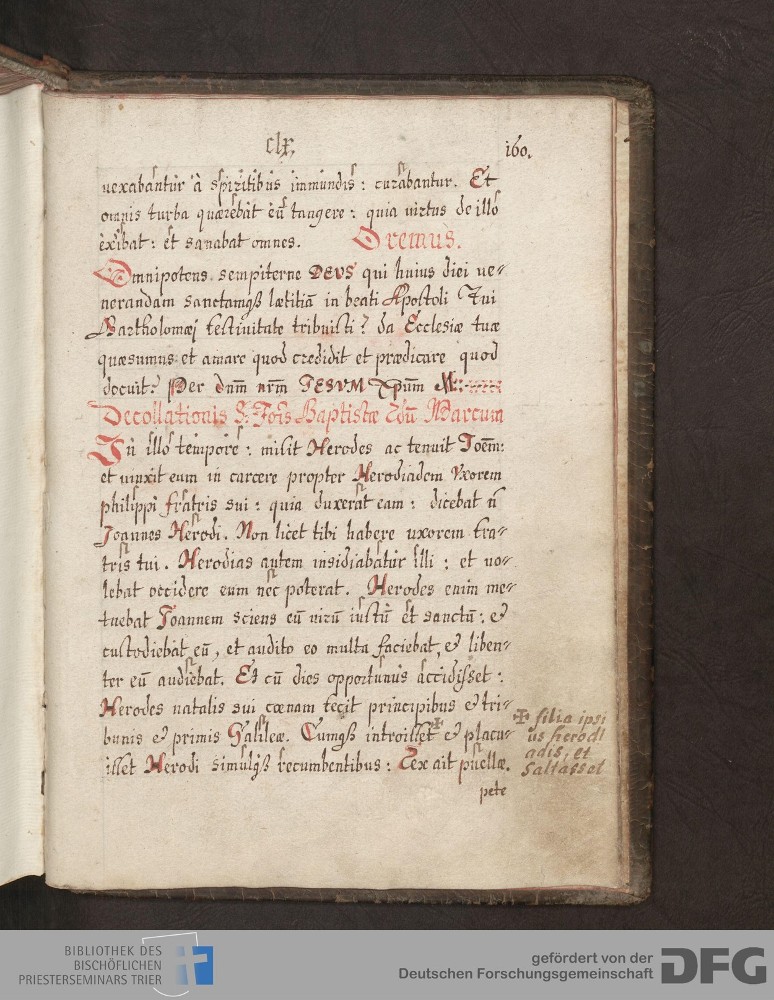 clx
160.
uexabantur à spiritibus immundis: curabantur. Et
omnis turba quærebat eũ tangere: quia virtus de illo
exibat: et sanabat omnes. Oremus.
Omnipotens sempiterne DEVS qui huius diei ue⸗
nerandam sanctamqꝫ lætitiã in beati Apostoli Tui
Bartholomæj festiuitate tribuisti: da Ecclesiæ tuæ
quæsumus: et amare quod credidit et prædicare quod
docuit: Per dnm̃ nrm̃ IESVM Xpum̃
Decollationis S: Jois Baptistæ Marcum
In illo tempore: misit Herodes ac tenuit Joem̃:
et uinxit eum in carcere propter Herodiadem Vxorem
philippi fratris sui: quia duxerat eam: dicebat n̄
Joannes Herodi. Non licet tibi habere uxorem fra⸗
tris tui. Herodias autem insidiabatur illi: et uo⸗
lebat occidere eum nec poterat. Herodes enim me⸗
tuebat Joannem sciens eũ virũ iustũ et sanctũ: &
custodiebat eũ, et audito eo multa faciebat, & liben⸗
ter eũ audiebat. Et cũ dies opportunus accidisset:
Herodes natalis sui cœnam fecit principibus & tri⸗
bunis & primis Galileæ. Cumqꝫ introisset ✠ & placu⸗
isset Herodi simulqꝫ recumbentibus: Rex ait puellæ.
pete
✠ filia ipsi
us herodi
adis, et
Saltasset
BIBLIOTHEK DES
BISCHÖFLICHEN
PRIESTERSEMINARS TRIER
gefördert von der
Deutschen Forschungsgemeinschaft DFG